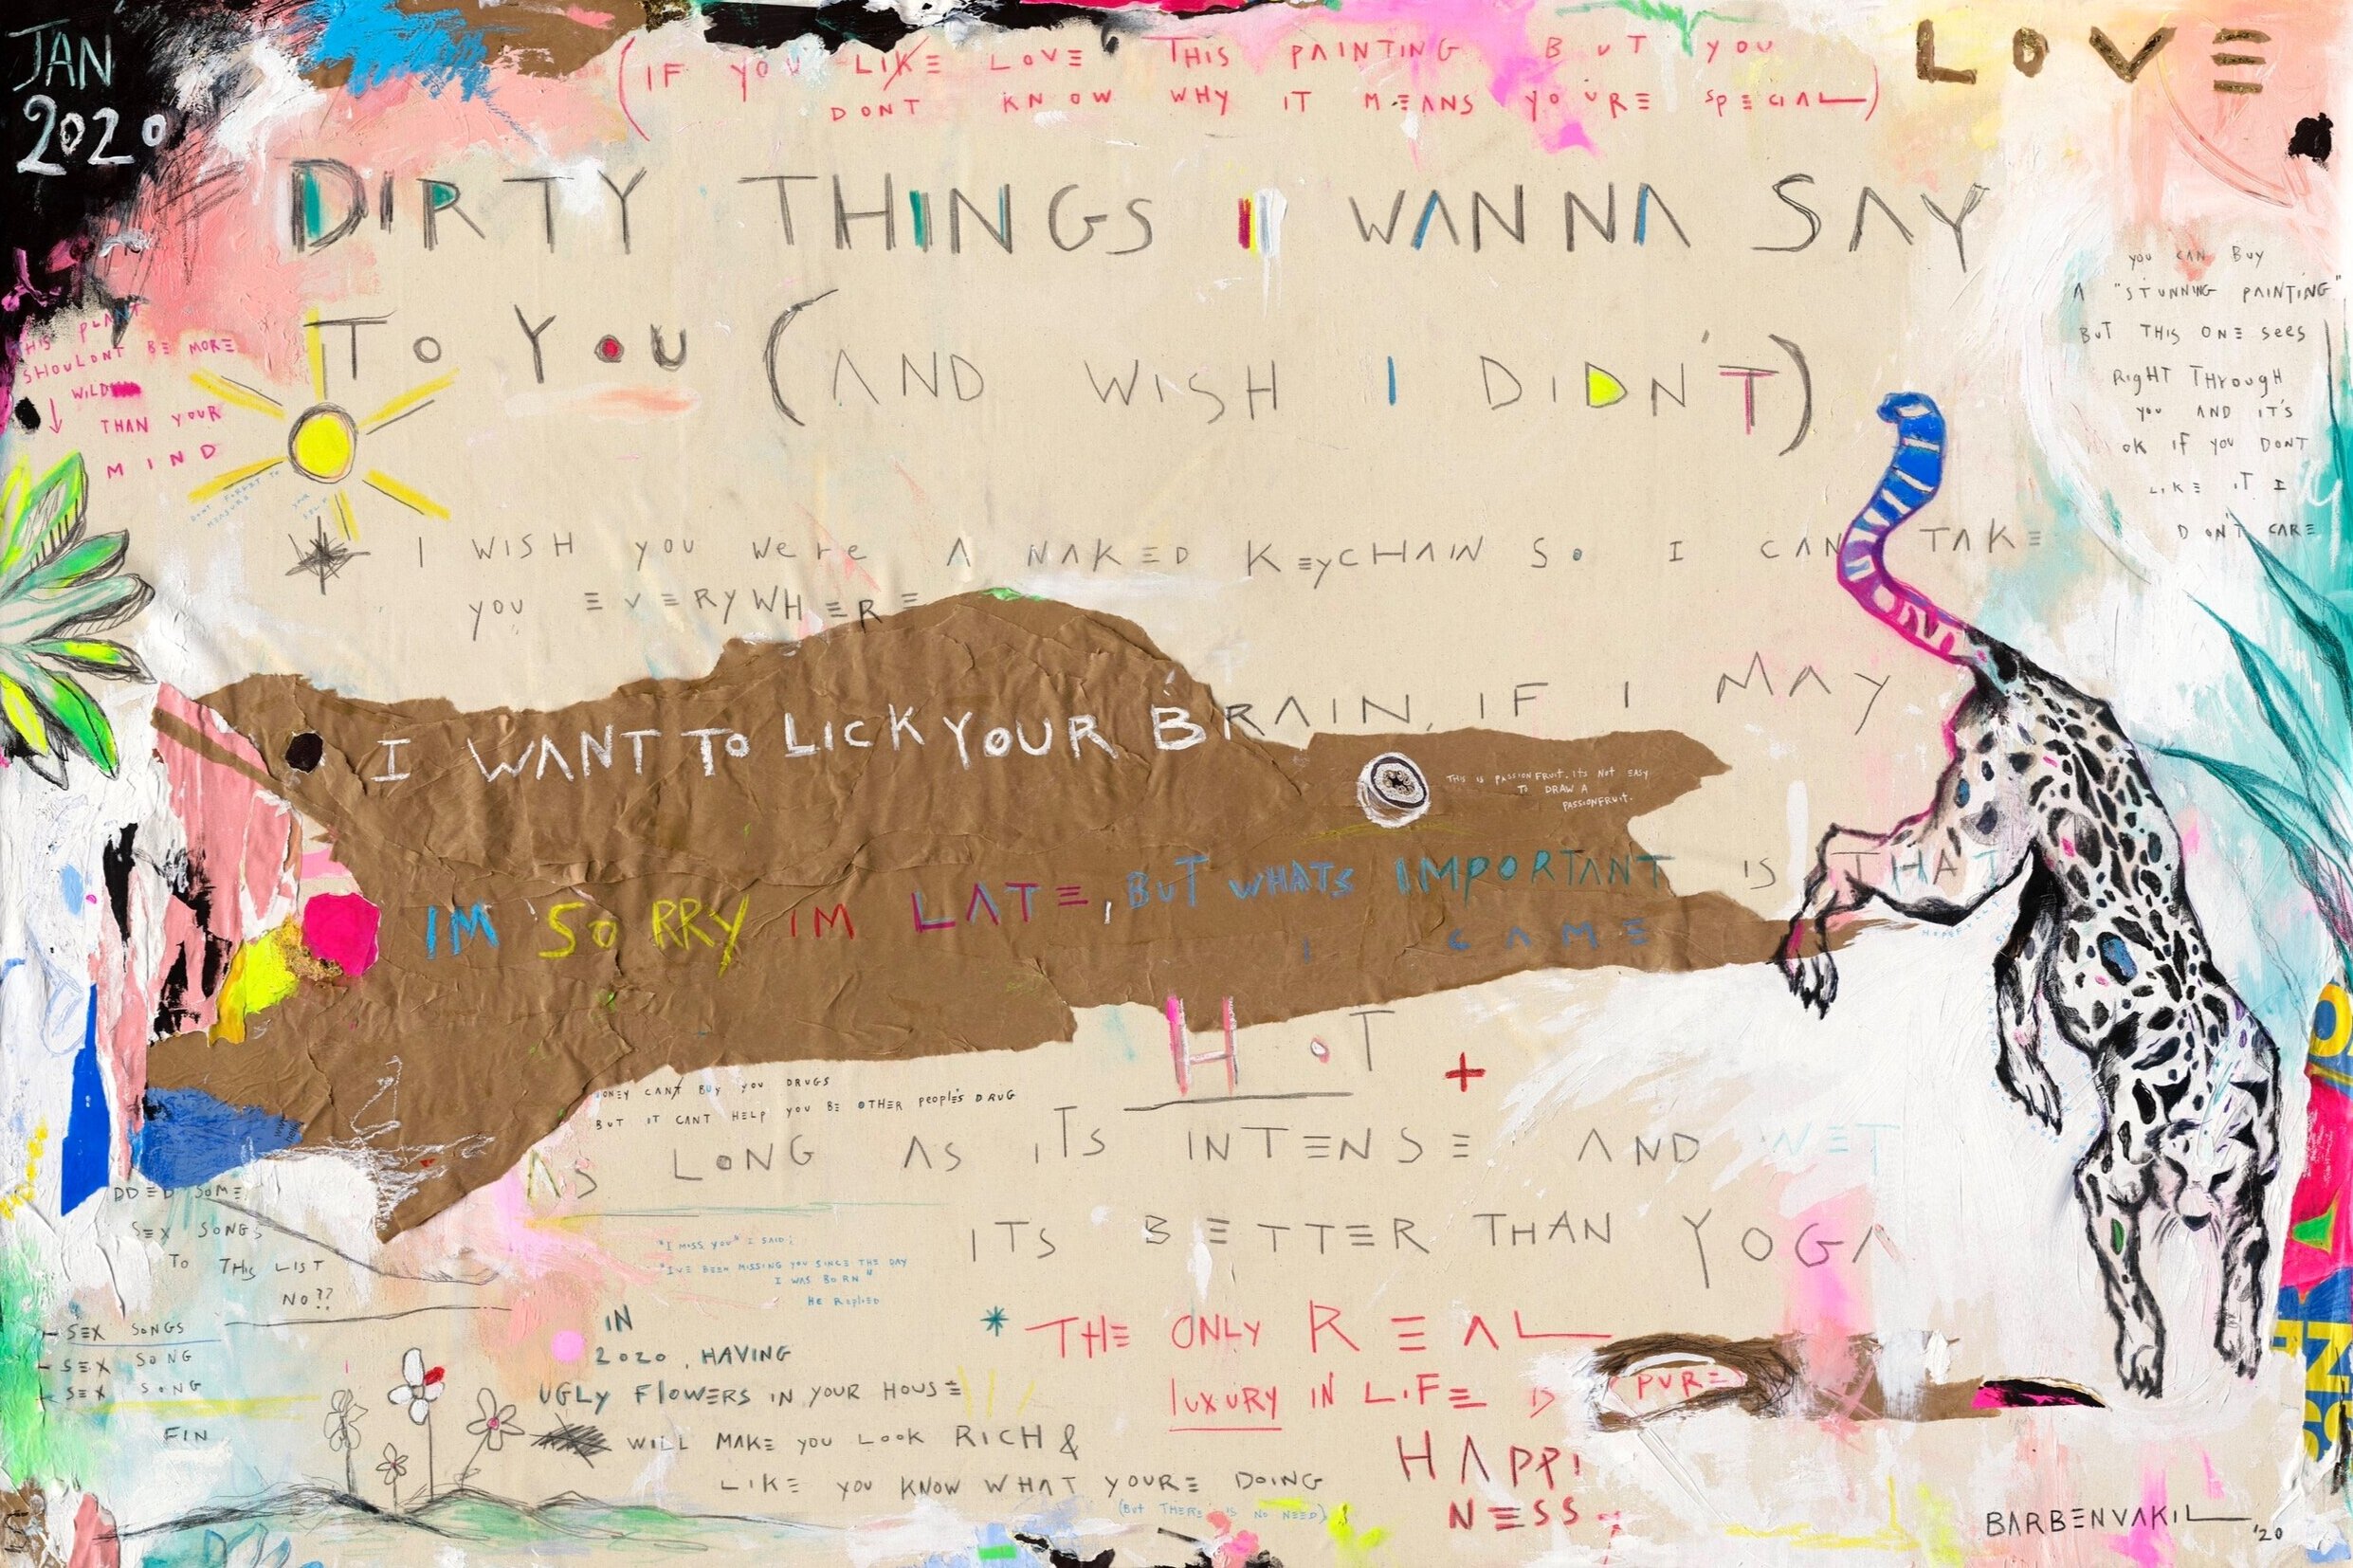 JAN
2020
LOVE
(IF YOU LIKE LOVE THIS PAINTING BUT YOU
DONT KNOW WHY IT MEANS YOU'RE SPECIAL)
DIRTY THINGS I WANNA SAY
TO YOU (AND WISH I DIDN'T)
YOU CAN BUY
A "STUNNING PAINTING"
BUT THIS ONE SEES
RIGHT THROUGH
YOU AND IT'S
OK IF YOU DONT
LIKE IT I
DON'T CARE
THIS PLANT
SHOULDNT BE MORE
WILD
THAN YOUR
MIND
DONT FORGET TO
MEASURE YOUR
I WISH YOU WERE A NAKED KEYCHAIN SO I CAN TAKE
YOU EVERYWHERE
I WANT TO LICK YOUR BRAIN, IF I MAY
THIS IS PASSIONFRUIT. ITS NOT EASY
TO DRAW A
PASSIONFRUIT.
IM SORRY IM LATE, BUT WHATS IMPORTANT IS THAT
I CAME
HOT +
MONEY CANT BUY YOU DRUGS
BUT IT CANT HELP YOU BE OTHER PEOPLE'S DRUG
AS LONG AS ITS INTENSE AND WET
ITS BETTER THAN YOGA
DDED SOME
SEX SONGS
TO THIS LIST
NO??
- SEX SONGS
- SEX SONG
- SEX SONG
FIN
"I MISS YOU" I SAID;
"IVE BEEN MISSING YOU SINCE THE DAY
I WAS BORN"
HE REPLIED
IN
2020, HAVING
UGLY FLOWERS IN YOUR HOUSE
WILL MAKE YOU LOOK RICH &
LIKE YOU KNOW WHAT YOURE DOING
(BUT THERE IS NO NEED)
* THE ONLY REAL
LUXURY IN LIFE IS (PURE)
HAPPI
NESS
BARBENVAKIL '20